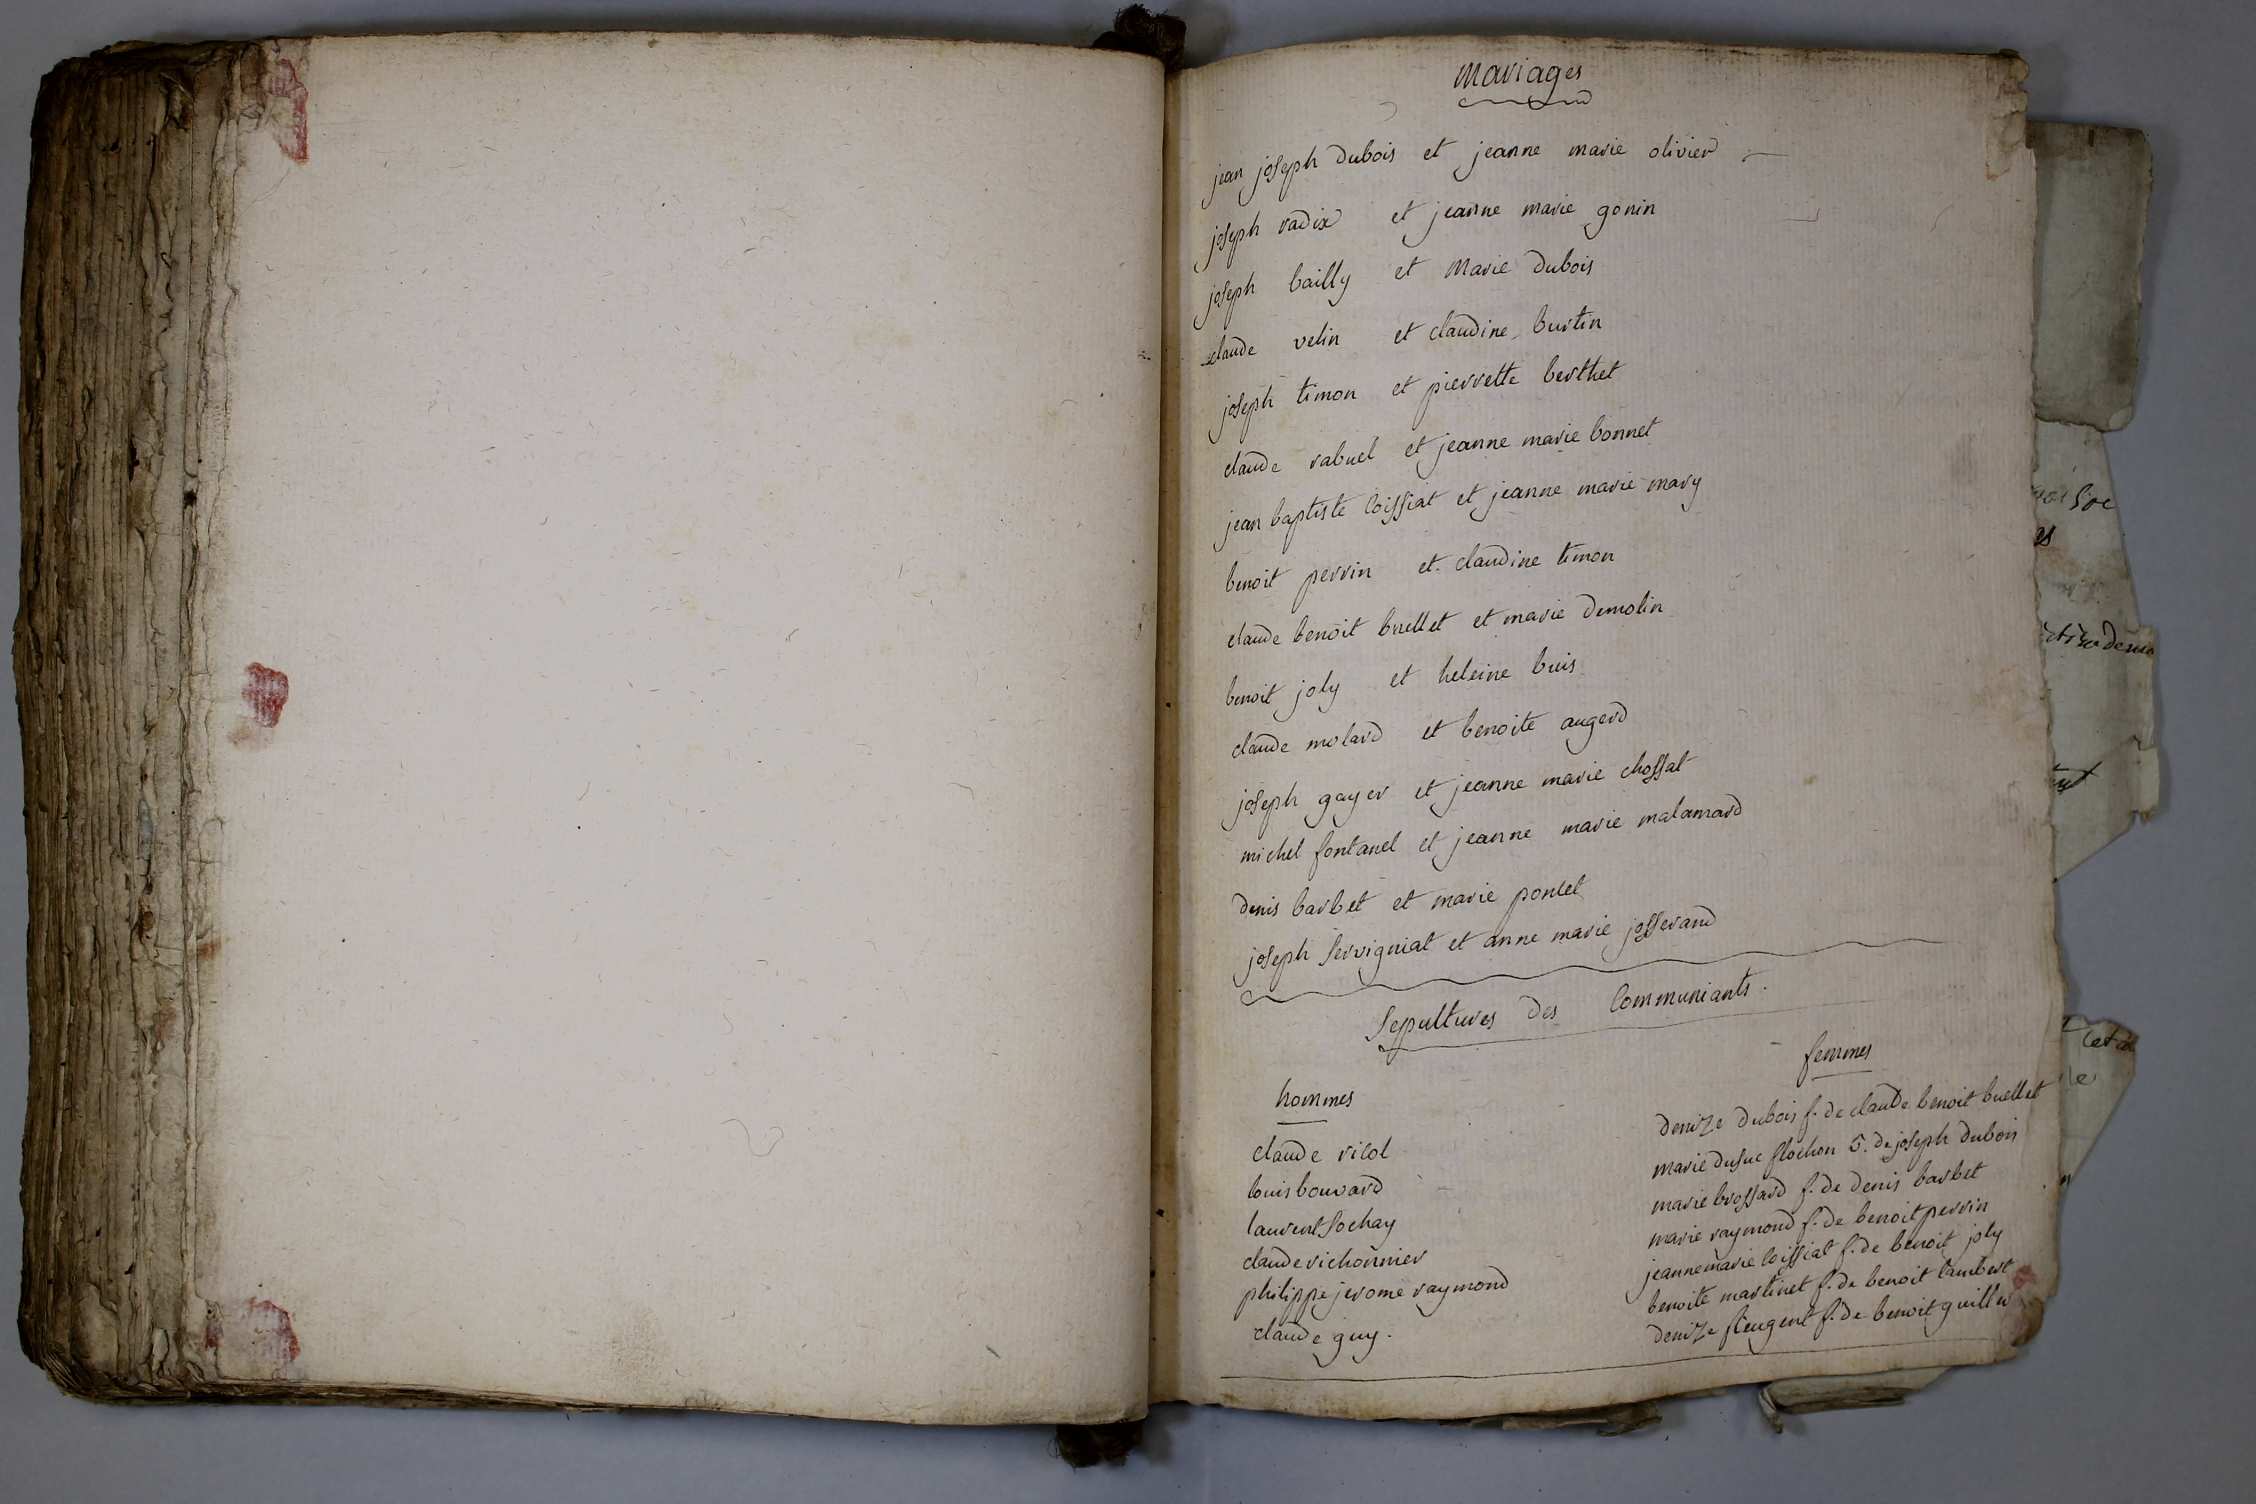 Mariages
jean joseph dubois et jeanne marie olivier
joseph radix et jeanne marie gonin
joseph bailly et Marie dubois
claude velin et claudine burtin
joseph timon et pierrette berthet
claude rabuel et jeanne marie bonnet
jean baptiste loissiat et jeanne marie mary
benoit perrin et claudine timon
claude benoit buellet et marie demolin
benoit joly et heleine buis
claude molard et benoite augerd
joseph gayer et jeanne marie chossat
michel fontanel et jeanne marie malamard
denis barbet et marie poncet
joseph servigniat et anne marie josserand
Sepultures des Communiants.
hommes
claude ricol
louis bouvard
laurent sochay
claude richonnier
philippe jerome raymond
claude guy.
femmes
denize dubois f. de claude benoit buellet
marie dusuc flochon v. de joseph dubois
marie brossard f. de denis barbet
marie raymond f. de benoit perrin
jeanne marie loissiat f. de benoit joly
benoite martinet f. de benoit lambert
denize feugent f. de benoit